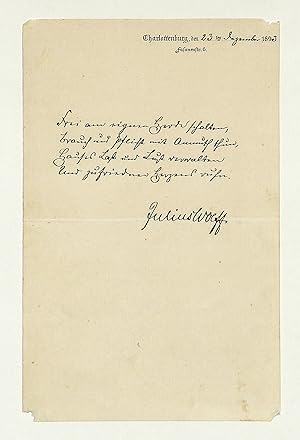 Charlottenburg, den 23ten Dezember 1893
Fasanenstr. 6.
Frei am eignen Herde schalten,
Brauch und Pflicht mit Anmuth thun,
Hauses Last und Lust verwalten
Und zufriednen Herzens ruhn.
Julius Wolff.